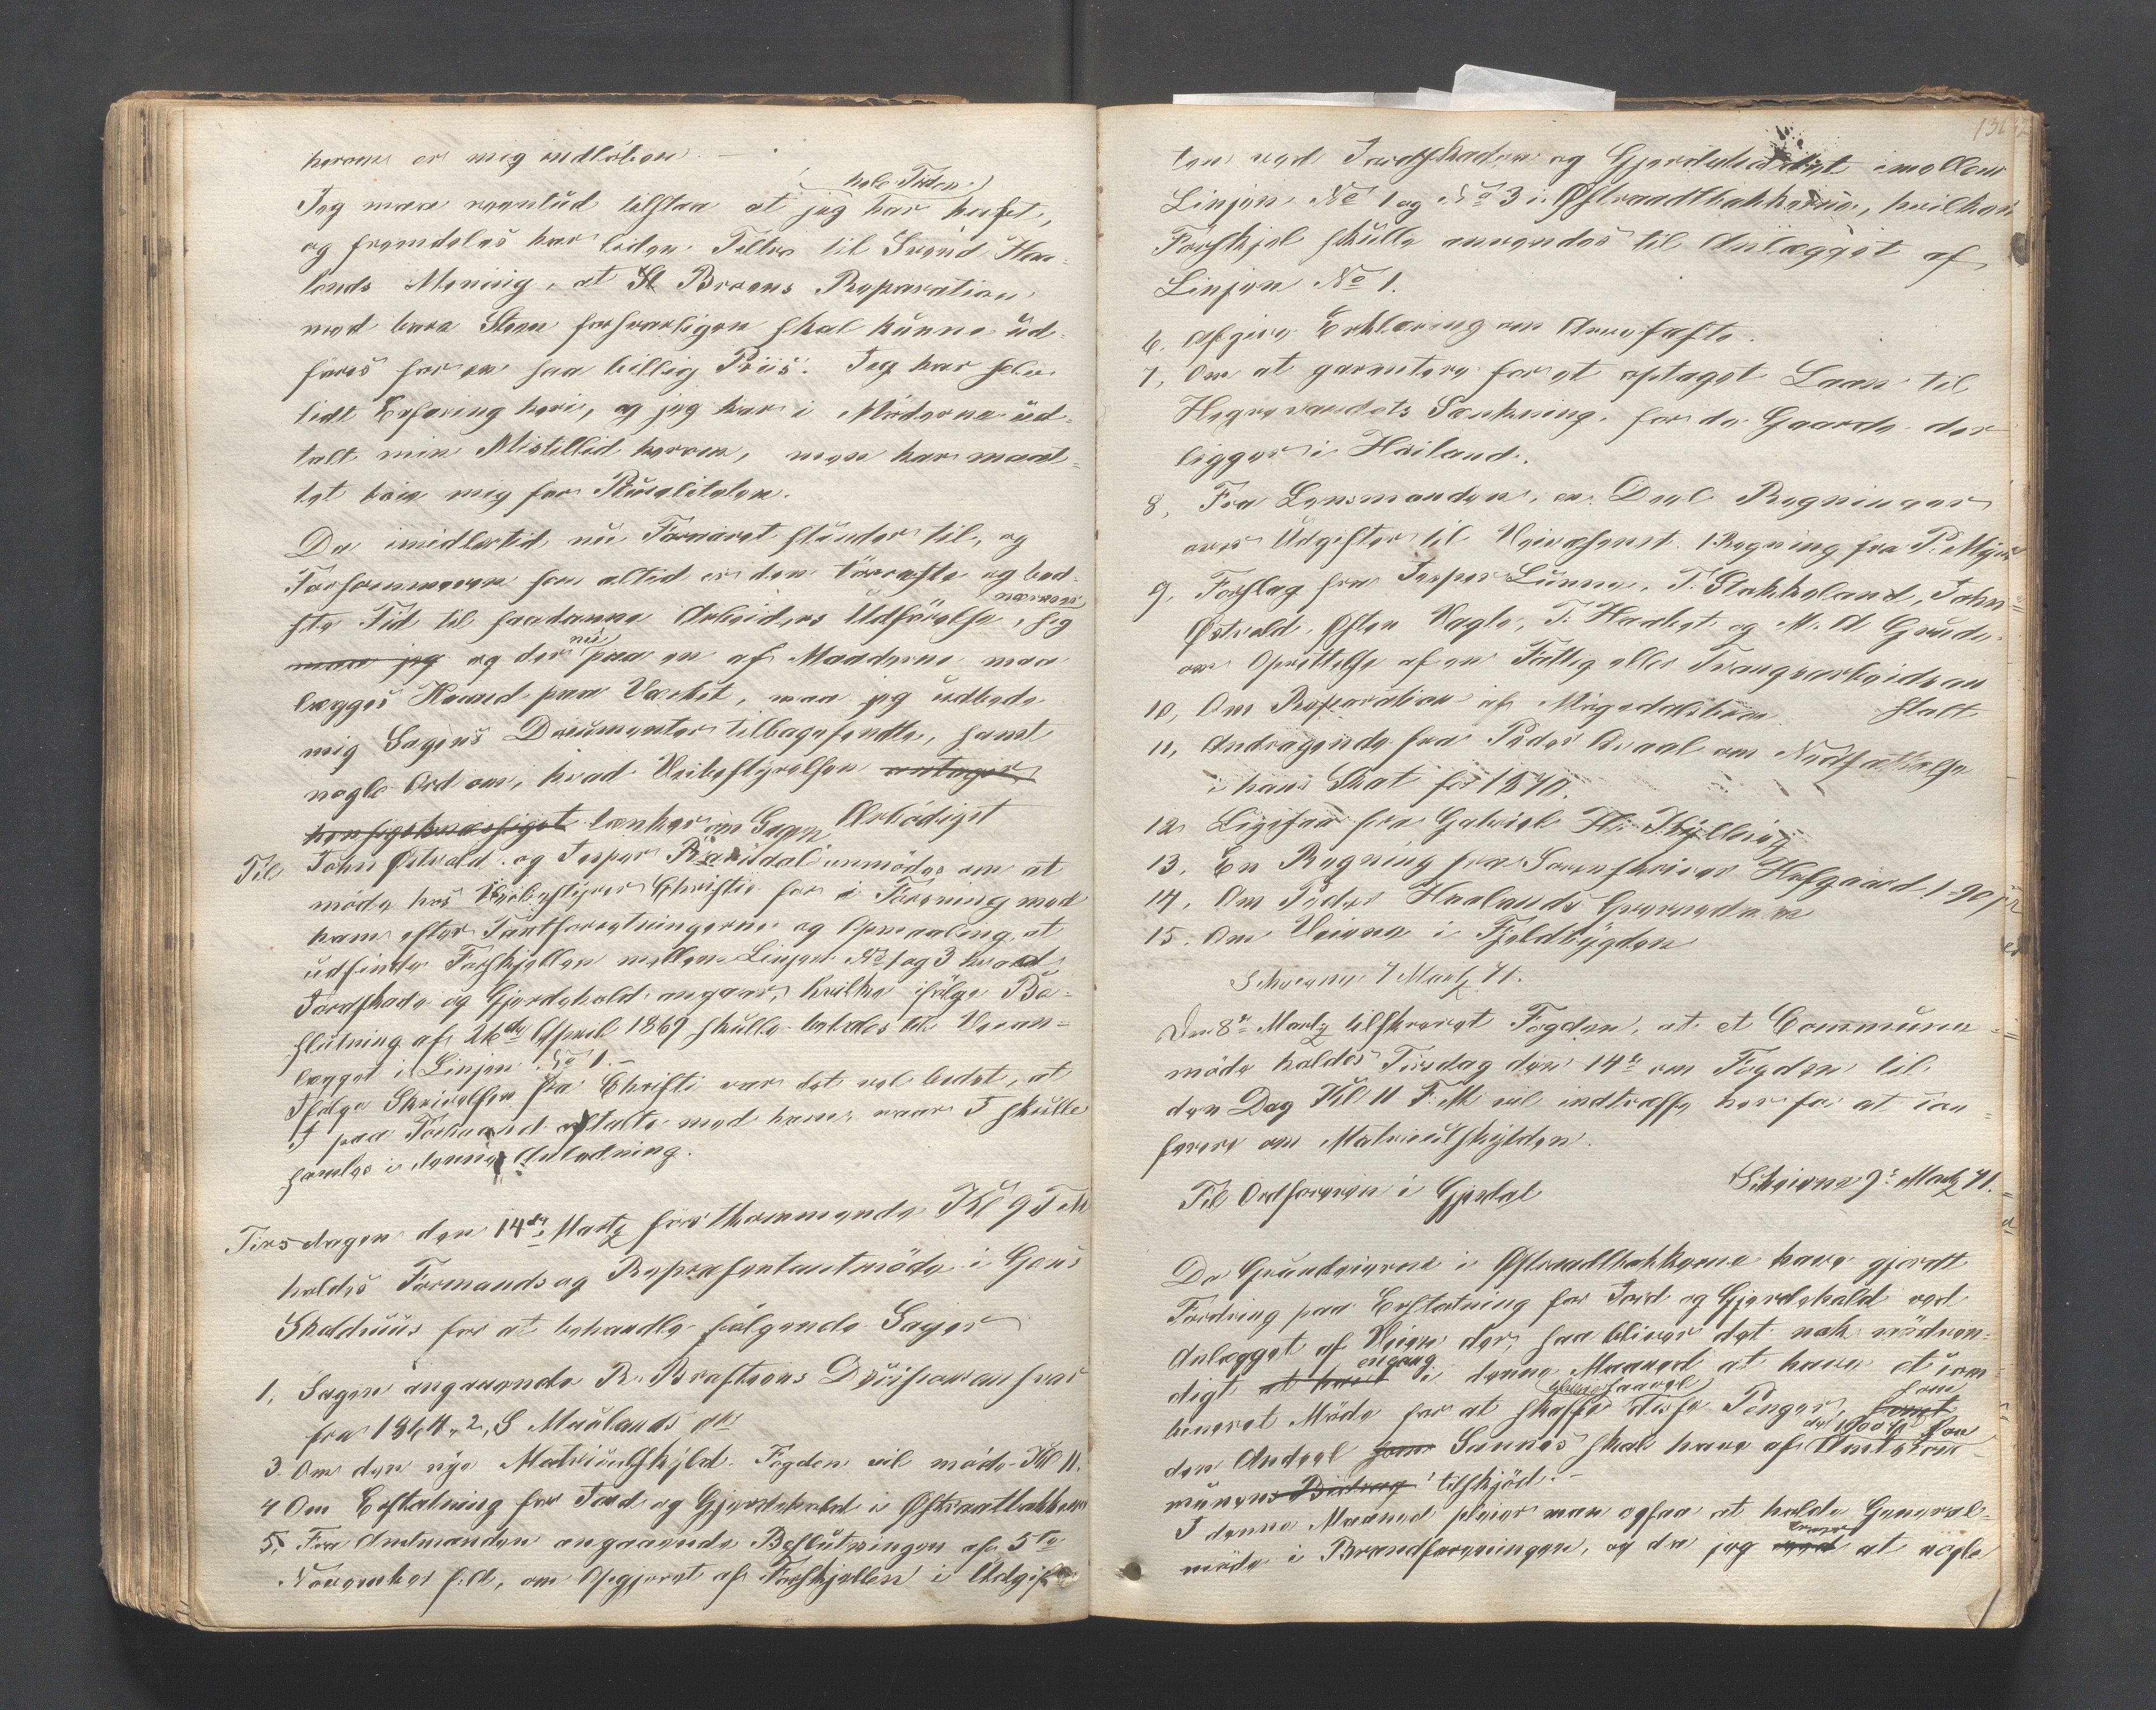 herom er mig indløben. —
(hele Tiden)
Jeg maa reentud tilstaa at jeg har havt,
og fremdeles har liden Tiltro til Svend Haa-
lands Mening, at Broens Reparation
med bare Steen forsvarligen skal kunne ud-
føres for en saa billig Priis. Jeg har selv
lidt Erfaring heri, og jeg har i Møderne ud-
talt min Mistillid herom, men har maat-
tet bøie mig for Pluraliteten.
Da imidlertid nu Foraaret stunder til, og
Forsommeren som altid er den tørreste og bed-
ste Tid til saadanne Arbeiders Udførelse, sig
nærmer
maa jeg og der nu paa en af Maaderne maa
lægges Haand paa Værket, maa jeg udbede
mig Sagens Documenter tilbagesendte, samt
nogle Ord om, hvad Veibestyrelsen antager
hensigtsmæssigst tænker om Sagen Ærbødigst
Til John Østvold og Jesper Ravndal anmodes om at
møde hos Veibestyrer Christie for i Forening med
ham efter Taxtforretningerne og Opmaaling at
udfinde Forskjellen mellem Linjen No 1 og 3 hvad
Jordskade og Gjerdehold angaar, hvilke ifølge Be-
slutning af 26de April 1869 skulle betales til Veian-
lægget i Linjen No 1. —
Ifølge Skrivelsen fra Christi var det vel bedst, at
I paa Forhaand aftalte med ham, naar I skulle
samles i denne Anledning.
Tirsdagen den 14de Martz førstkommende Kl 9 F M
holdes Formands og Repræsentantmøde i Gans
Skolehuus for at behandle følgende Sager
1, Sagen angaaende R. Krafttens Decisionsanser
fra 1864. 2, S Maulands do
3. Om den nye Matriculskyld. Fogden vil møde Kl 11.
4 Om Erstatning for Jord og Gjerdehold i Østraatbakkerne
5, Fra Amtmanden angaaende Beslutningen af 5te
November f. A, om Opgjøret af Forskjellen i Udgif-
136
ten ved Jordskaden og Gjerdeholdet imellem
Linjen No 1 og No 3 i Østraadtbakkerne, hvilken
Forskjel skulle anvendes til Anlægget af
Linjen No 1.
6. Afgive Erklæring om Arvefæste.
7, Om at garantere for et optaget Laan til
Hegrevandets Sænkning, for de Gaarde der
ligger i Høiland.
8, Fra Lensmanden, en Deel Regninger
over Udgifter til Veivæsenet. 1 Regning fra P. Meyer
9, Forslag fra Jesper Lunne, T. Stokkeland, John
Østvold, Østen Vagle, T. Haabet og M. A Grude
om Oprettelse af en Fattig eller Tvangsarbeidsan
stalt
10, Om Reparation af
11, Andragende fra Peder Aaal om Nedsættelse
i hans Skat for 1870.
12 Ligesaa fra Gabriel H. Kylling
13, En Regning fra Sorenskriver Hofgaard 1-90 ß
14, Om Peder Haalands
15. Om Veiene i Fjeldbygden
Schoiene 7 Martz 71.
Den 8de Martz tilskrevet Fogden, at et Commune
møde holdes Tirsdag den 14de om Fogden til
den Dag Kl 11 F. M vil indtræffe her for at con-
ferere om Matriculskylden.
Til Ordføreren i Gjesdal Schoiene 9de Martz 71.
Da Grundeierne i Østraadtbakkerne have gjordt
Fordring paa Erstatning for Jord og Gjerdehold ved
Anlægget af Veiene der, saa bliver det nok nødven-
digt at have engang i denne Maaned at have et com-
bineret Møde for at skaffe disse Penger, samt
saavel som
den Andeel som Sannes skal have af de 1000 Amtscom-
munens Bidrag tilskjød. —
I denne Maaned pleier man ogsaa at holde General-
møde i Brandforeningen, og da jeg veed at nogle